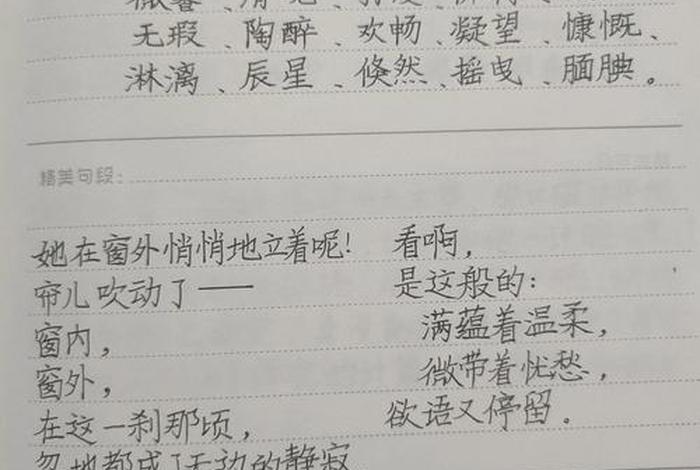 无瑕、陶醉、欢畅、凝望、慷慨、
淋漓、辰星、倏然、摇曳、腼腆。
精美句段：
她在窗外悄悄地立着呢！
帘儿吹动了——
窗内，
窗外，
在这一刹那顷，
忽地都成了无边的静寂
看啊，
是这般的：
满蕴着温柔，
微带着忧愁，
欲语又停留。